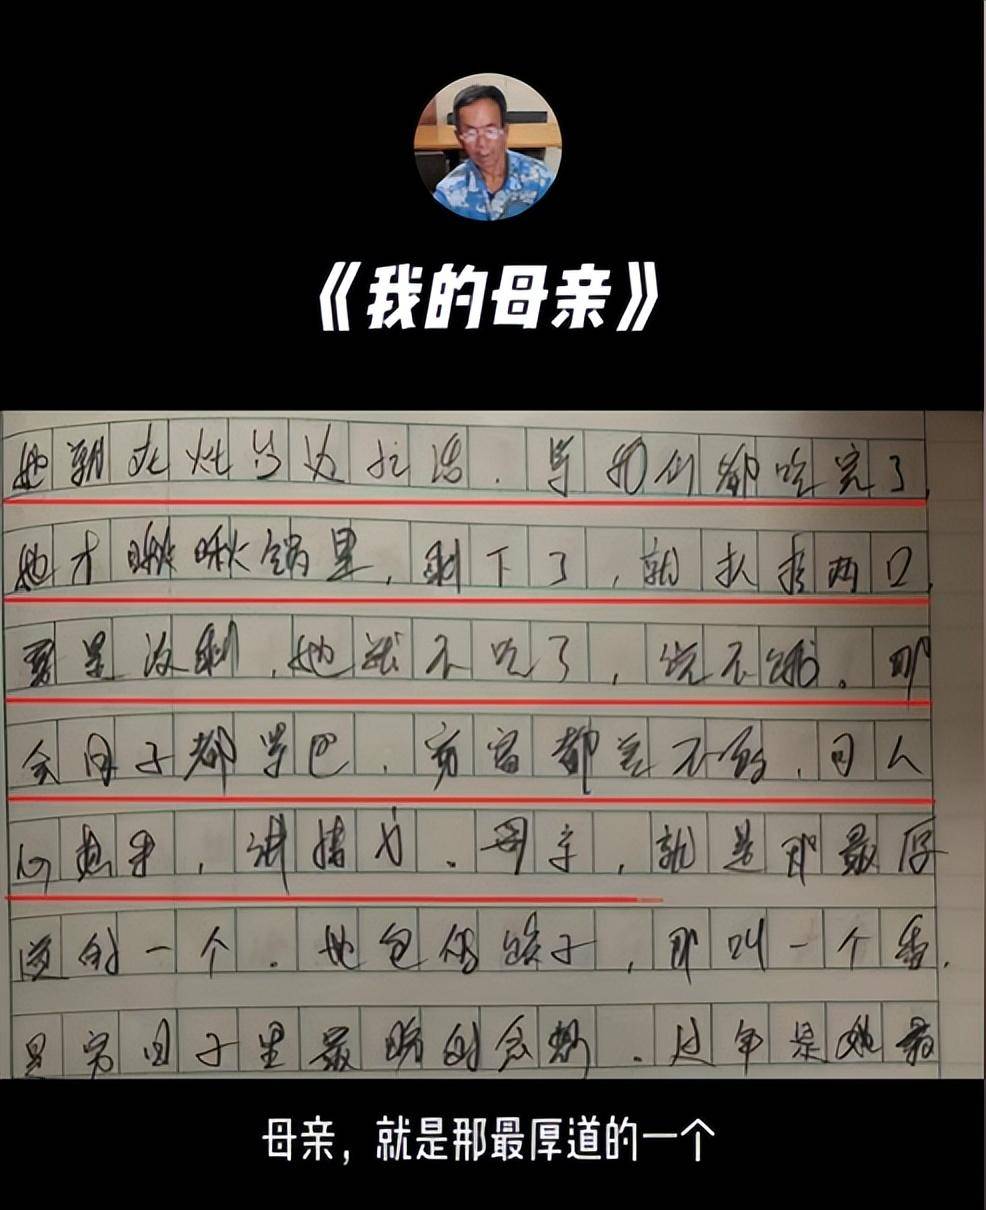 《我的母亲》
她就在灶台边忙活。等我们都吃完了,
她才瞅瞅锅里,剩下了,就扒拉两口,
要是没剩,她就不吃了,说不饿。那
会日子都紧巴,穷富都差不多,可人
心热乎,讲情义。母亲,就是那最厚
道的一个。她包的饺子,那叫一个香,
是穷日子里最暖的念想。过年是她最
母亲，就是那最厚道的一个